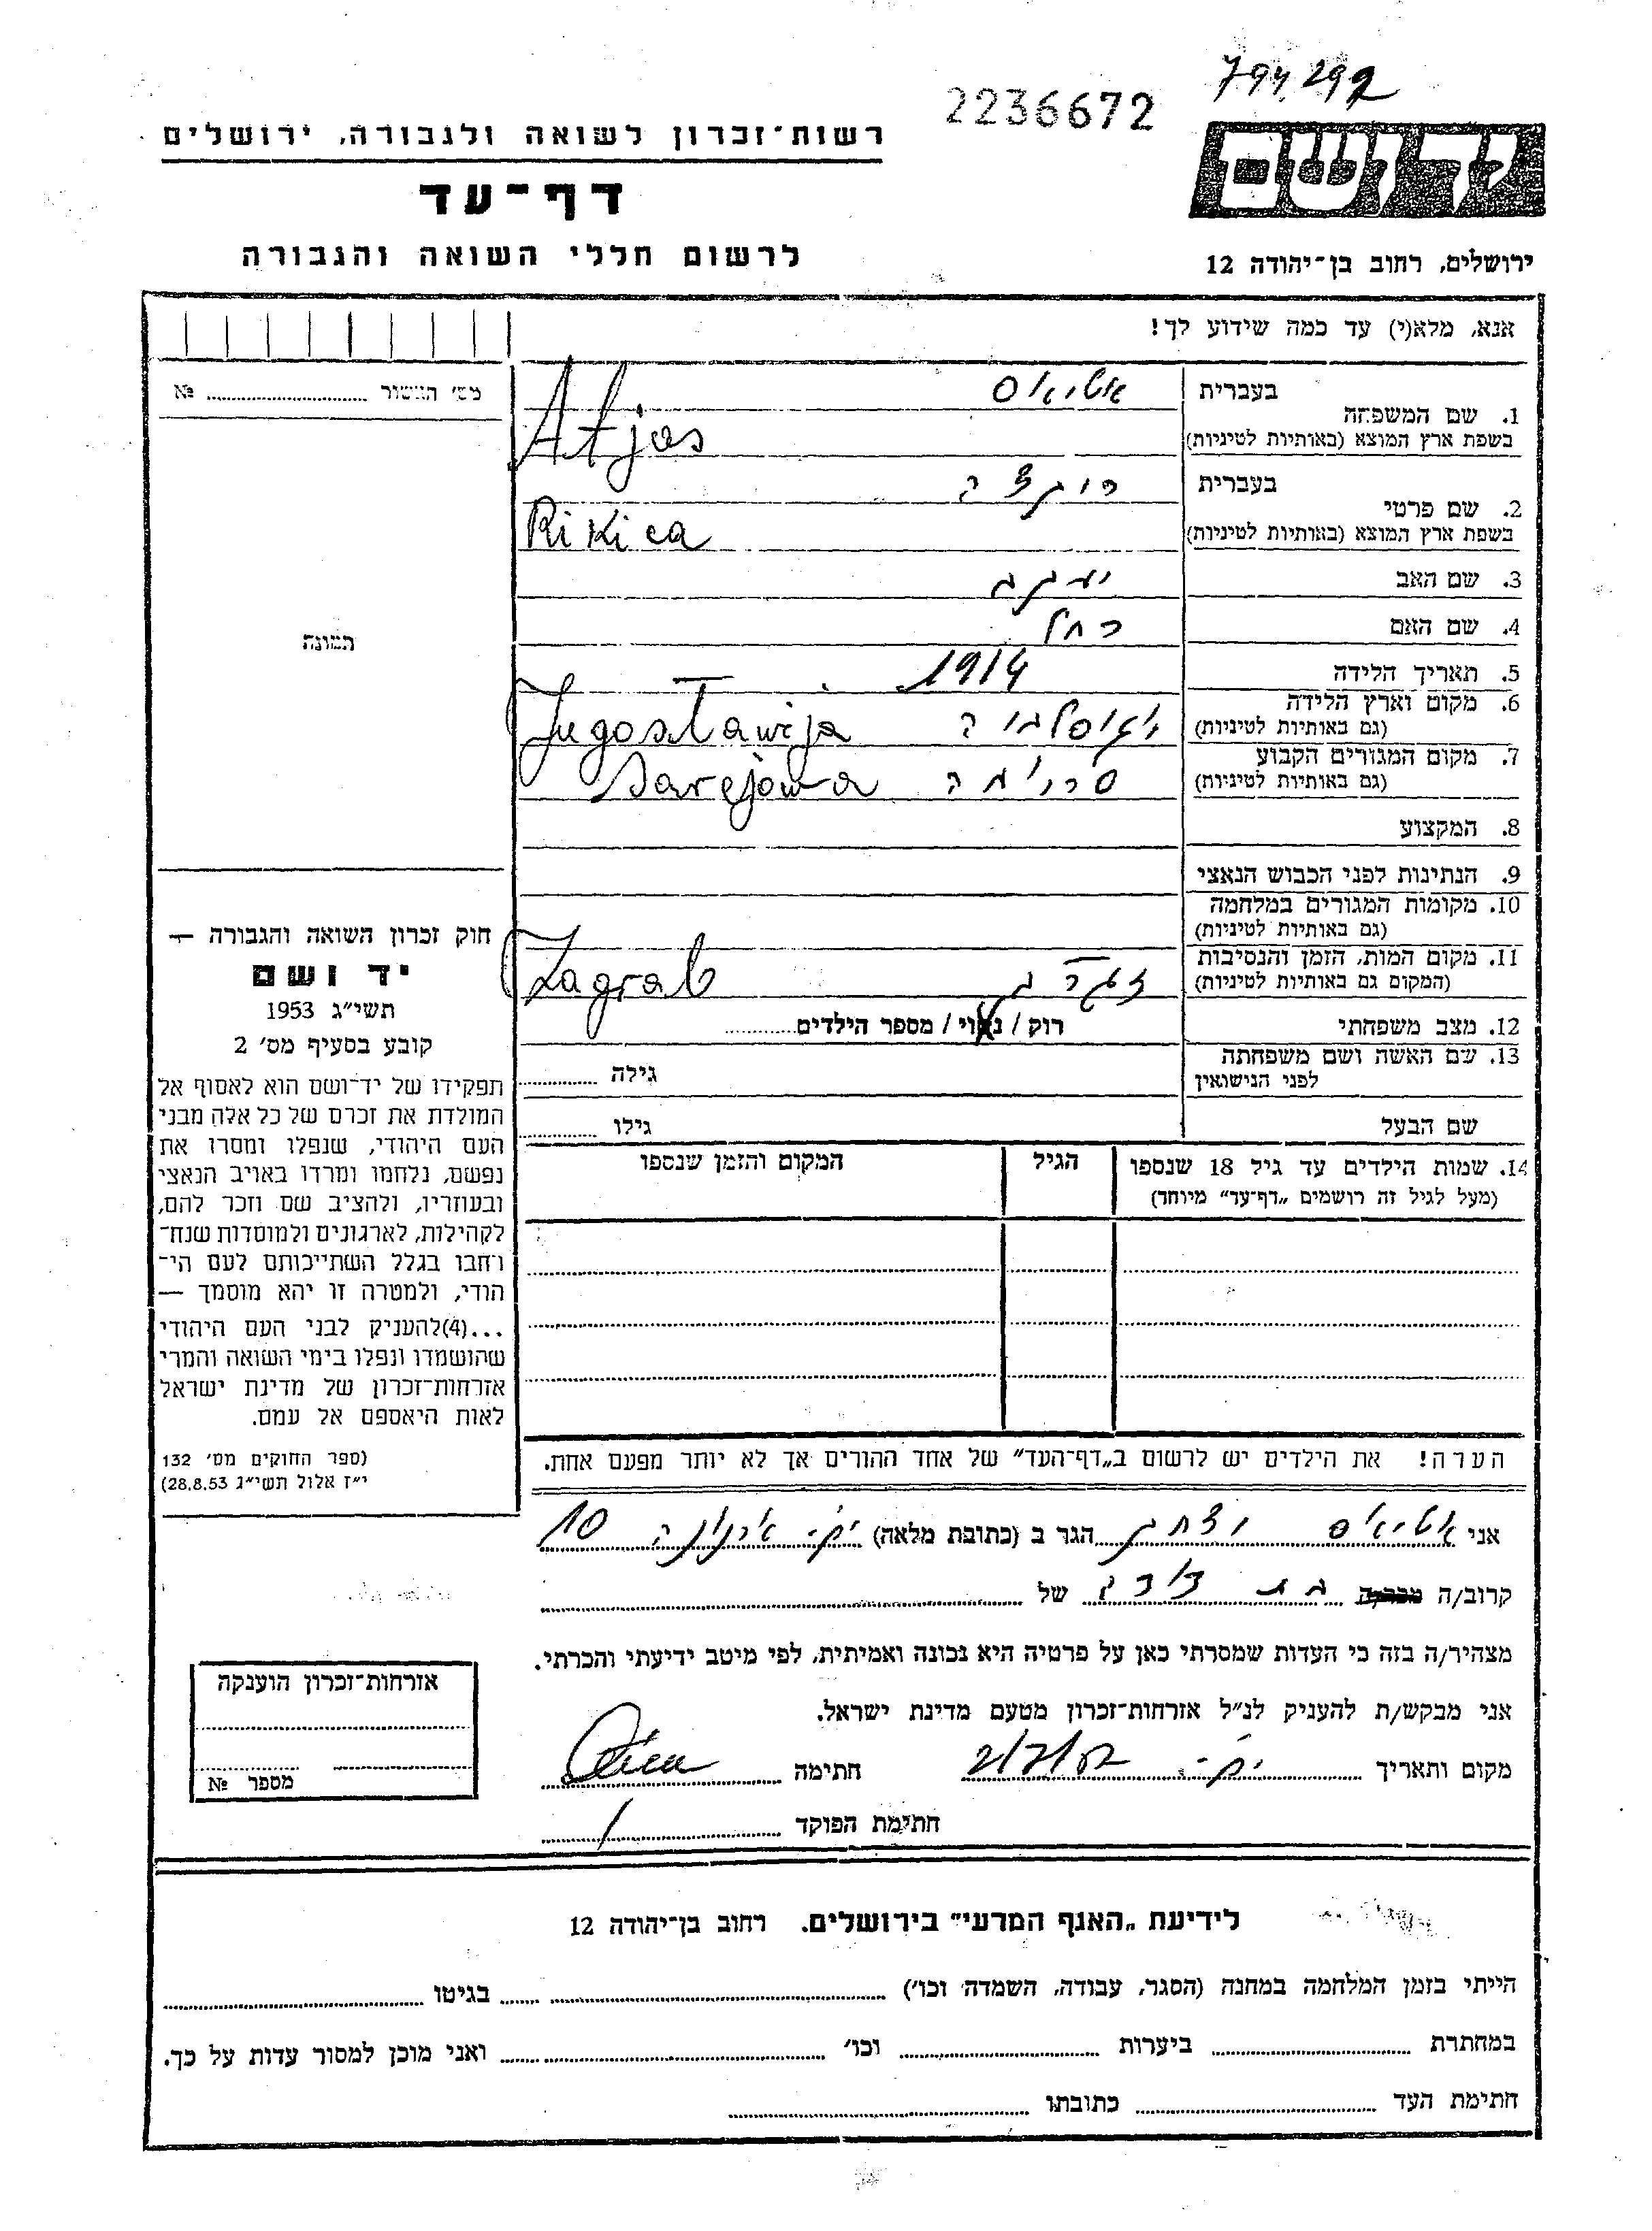 794292
2236672
ידושם
רשות־זכרון לשואה ולגבורה, ירושלים
דף־עד
לרשום חללי השואה והגבורה
ירושלים, רחוב בן־יהודה 12
אנא, מלא(י) עד כמה שידוע לך!
מס׳ האשור ........ №
תמונה
1. שם המשפחה
בעברית אטיאס
בשפת ארץ המוצא (באותיות לטיניות) Atjas
2. שם פרטי
בעברית ריקצה
בשפת ארץ המוצא (באותיות לטיניות) Rikica
3. שם האב יעקב
4. שם האם רחל
5. תאריך הלידה 1914
6. מקום וארץ הלידה יגוסלביה Jugoslawija
(גם באותיות לטיניות)
7. מקום המגורים הקבוע Sarejowa
(גם באותיות לטיניות)
8. המקצוע
9. הנתינות לפני הכבוש הנאצי
10. מקומות המגורים במלחמה
(גם באותיות לטיניות)
11. מקום המות, הזמן והנסיבות זגרב Zagrab
(המקום גם באותיות לטיניות)
12. מצב משפחתי רוק / נשוי / מספר הילדים
13. שם האשה ושם משפחתה גילה
לפני הנישואין
שם הבעל גילו
14. שמות הילדים עד גיל 18 שנספו הגיל המקום והזמן שנספו
(מעל לגיל זה רושמים „דף־עד״ מיוחד)
הערה! את הילדים יש לרשום ב„דף־העד״ של אחד ההורים אך לא יותר מפעם אחת.
חוק זכרון השואה והגבורה —
יד ושם
תשי״ג 1953
קובע בסעיף מס׳ 2
תפקידו של יד־ושם הוא לאסוף אל
המולדת את זכרם של כל אלה מבני
העם היהודי, שנפלו ומסרו את
נפשם, נלחמו ומרדו באויב הנאצי
ובעוזריו, ולהציב שם וזכר להם,
לקהילות, לארגונים ולמוסדות שנח־
רחבו בגלל השתייכותם לעם הי־
הודי, ולמטרה זו יהא מוסמך —
...(4)להעניק לבני העם היהודי
שהושמדו ונפלו בימי השואה והמרי
אזרחות־זכרון של מדינת ישראל
לאות היאספם אל עמם.
(ספר החוקים מס׳ 132
י״ז אלול תשי״ג 28.8.53)
אני אטיאס יצחק הגר ב (כתובת מלאה) 10
קרוב/ה בת דודה של
מצהיר/ה בזה כי העדות שמסרתי כאן על פרטיה היא נכונה ואמיתית, לפי מיטב ידיעתי והכרתי.
אני מבקש/ת להעניק לנ״ל אזרחות־זכרון מטעם מדינת ישראל.
מקום ותאריך חתימה
חתימת הפוקד
אזרחות־זכרון הוענקה
מספר №
לידיעת „האגף המדעי״ בירושלים. רחוב בן־יהודה 12
הייתי בזמן המלחמה במחנה (הסגר, עבודה, השמדה וכו׳) בגיטו
במחתרת ביערות וכו׳ ואני מוכן למסור עדות על כך.
חתימת העד כתובתו